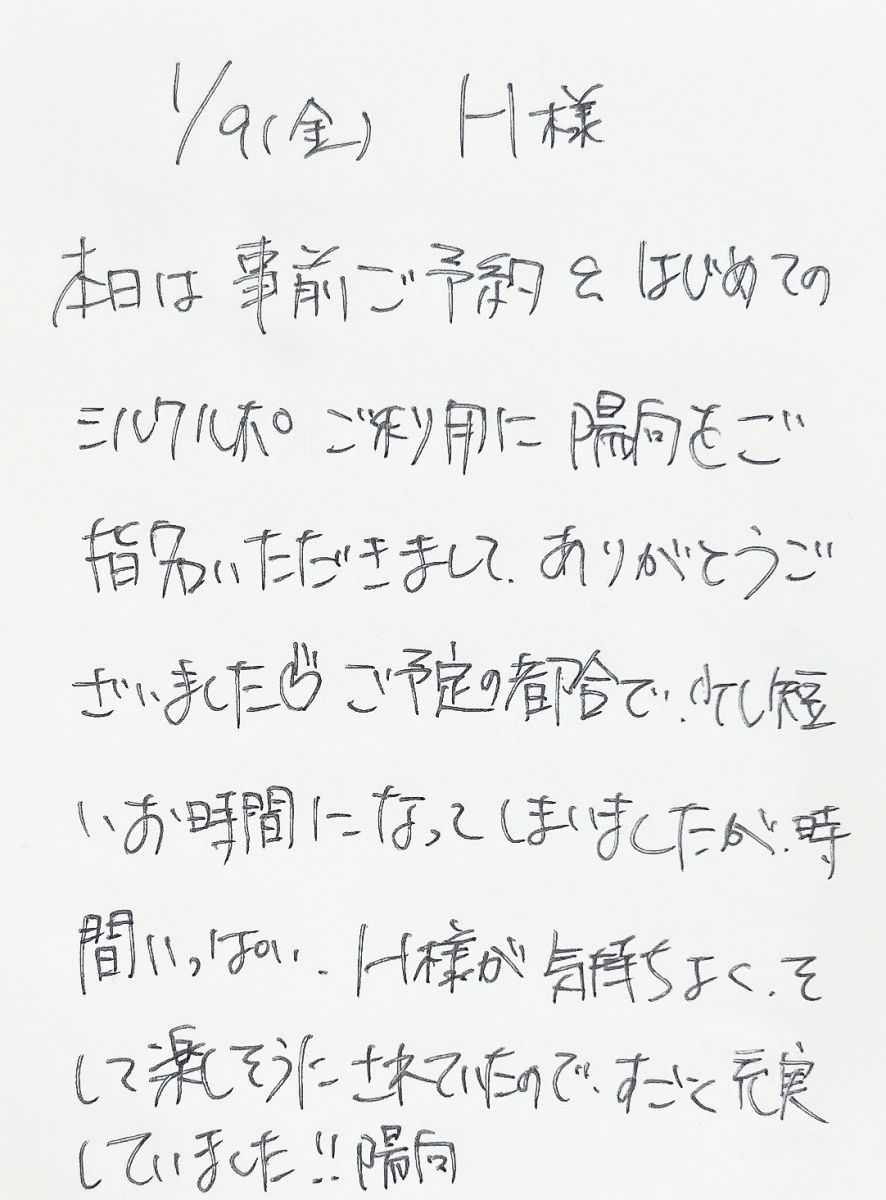 1/9(金) H様
本日は事前ご予約とはじめての
ミルクルポ ご利用に 陽向をご
指名いただきまして、ありがとうご
ざいました ご予定の都合で、少し短
いお時間になってしまいましたが、時
間いっぱい、H様が気持ちよく、そ
して楽しそうにされていたので、すごく充実
していました!!陽向